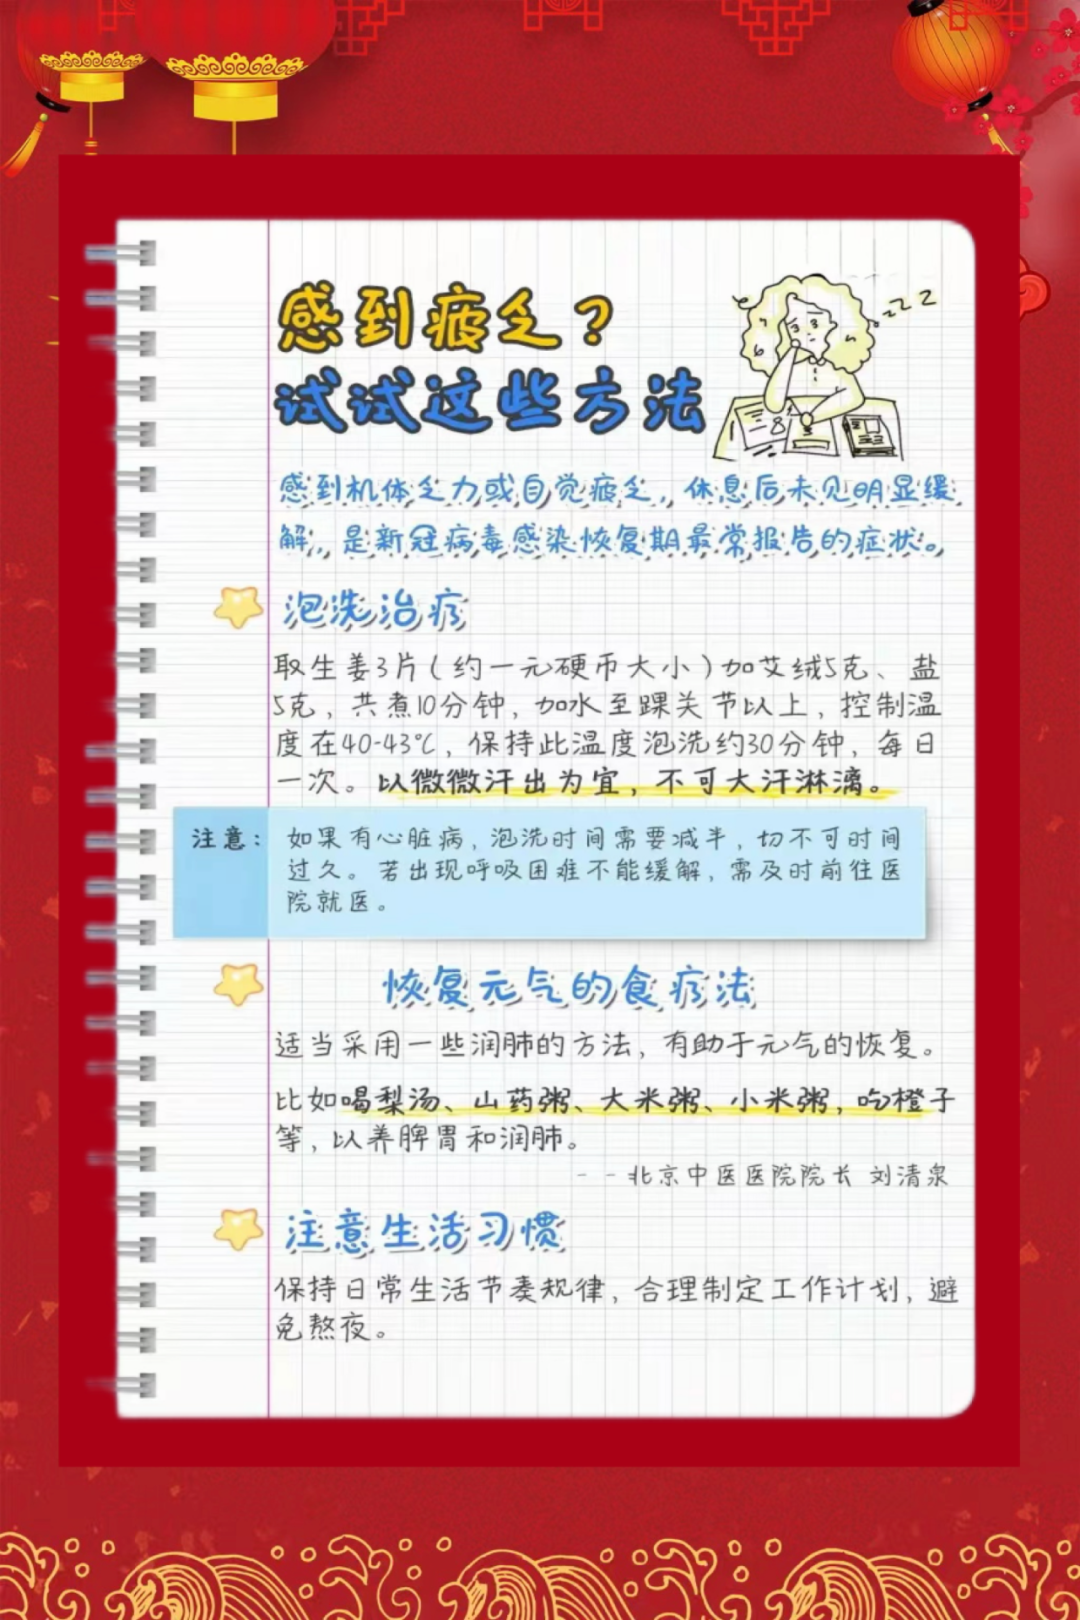 感到疲乏？
试试这些方法
zzZ
感到机体乏力或自觉疲乏，休息后未见明显缓
解，是新冠病毒感染恢复期最常报告的症状。
泡洗治疗
取生姜3片（约一元硬币大小）加艾绒5克、盐
5克，共煮10分钟，加水至踝关节以上，控制温
度在40-43℃，保持此温度泡洗约30分钟，每日
一次。以微微汗出为宜，不可大汗淋漓。
注意：如果有心脏病，泡洗时间需要减半，切不可时间
过久。若出现呼吸困难不能缓解，需及时前往医
院就医。
恢复元气的食疗法
适当采用一些润肺的方法，有助于元气的恢复。
比如喝梨汤、山药粥、大米粥、小米粥，吃橙子
等，以养脾胃和润肺。
--北京中医医院院长 刘清泉
注意生活习惯
保持日常生活节奏规律，合理制定工作计划，避
免熬夜。